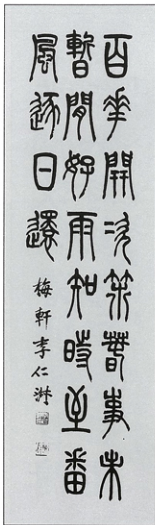 百華開次第春事未
暫閒好雨知時至番
風逐日還
梅軒李仁